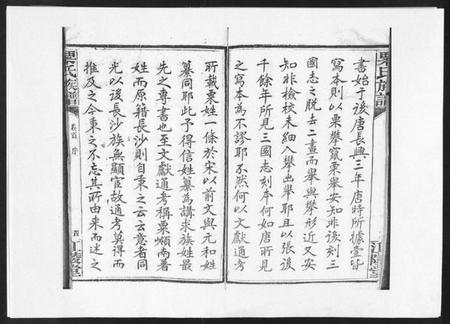 書始于後唐長興三年唐時所據壹皆
寫本則以粟舉竄粟舉安知非後刻三
國志之脫去二畫而舉與攀形近又安
知非檢校未細入舉出舉耶且以張後
千餘年所見三國志刻本何如唐所見
之寫本為不謬耶不然何以文獻通考
所載粟姓一條於宋以前文與元和姓
纂同耶此予得信姓纂為講求族姓最
先之專書也至文獻通考稱粟願南著
姓而原籍長沙則自粟之云云意者同
光以後長沙族無顯宦故通考莫得而
推及之今粟之不忘其所由來而述之
粟氏族譜
卷首 序
四
粟氏族譜